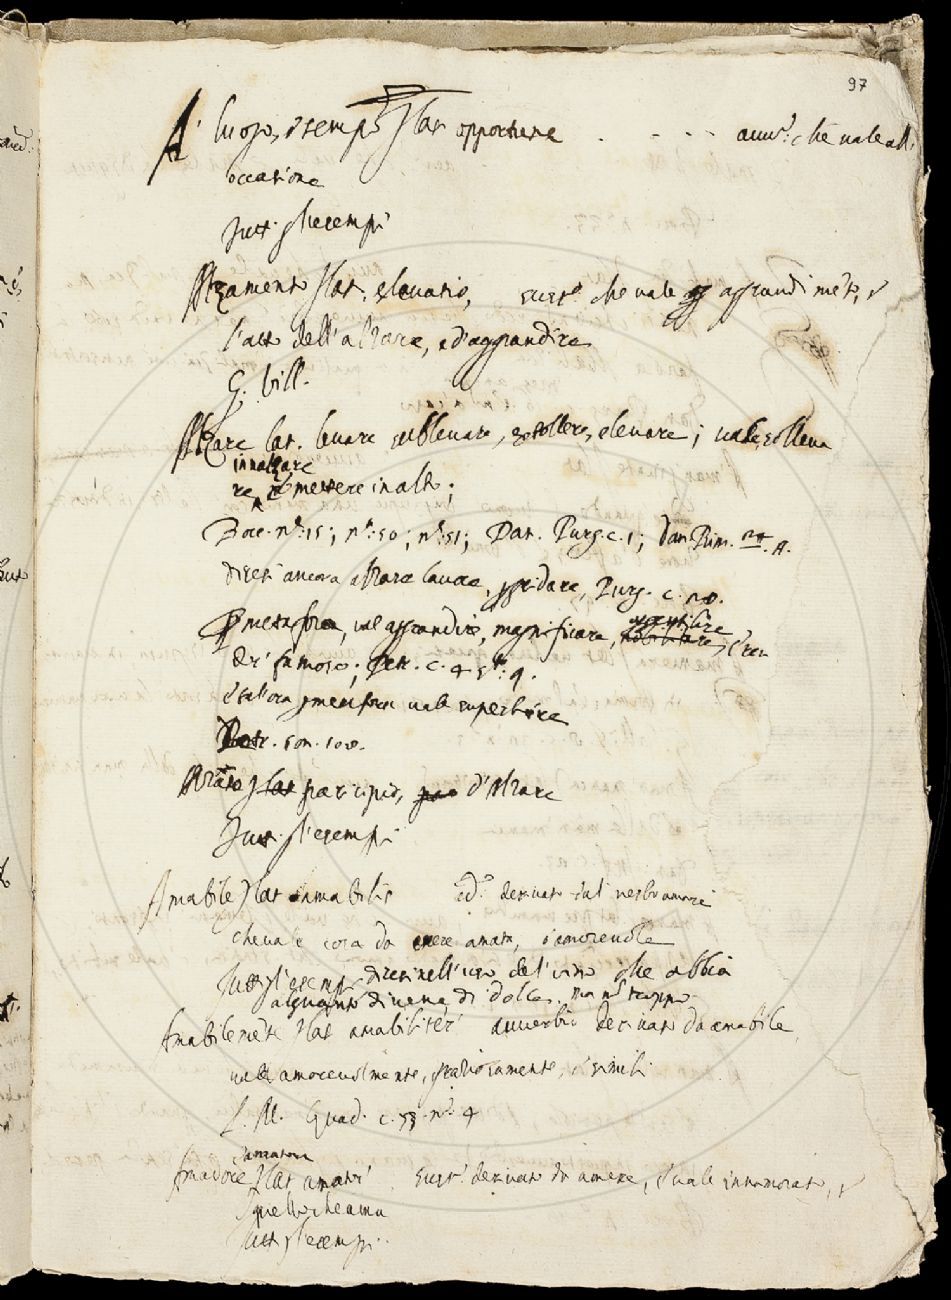 97
A' luogo, e tempo Lat. opportune . - - . . auu.º: che vale all'
occasione
Tutti gl'esempi
Alzamento Lat. eleuatio, sust.º che vale aggrandimẽto, e
l'atto dell'alzare, e d'aggrandire
G. Vill.
Alzare lat. leuare sublleuare, extollere, eleuare; uale solleua
innalzare
re, e mettere in alto;
Bocc. nº: 15; nº: 50; nº: 51; Dan. Purg. c. 1; Dan. Rim.
dicesi ancora alzare la uoce, p gridare, Purg. c.
P metafora, val aggrandire, magnificare, nobilitare,
der famoso; Petr. c. 4 stª: 9.
e tal'ora p metafora uale superbire
Petr. son. 100.
Alzato Lat. participio, d'Alzare
Tutti gl'esempi
Amabile Lat. amabilis ad.º deriuato dal uerbo amare
che uale cosa da essere amata, e amoreuole
Tutti gl'esempi dicesi nell'uso del uino che abbia
alquanto di uena di dolce, ma nõ troppo
Amabilmẽte Lat. amabiliter auuerbio deriuato da amabile
uale amoreuolmente, graziosamente, e simili
L. M. Guad. c. 53. nº. 4
Amadore Lat. amator sust.º deriuato da amare, e uale innamorato, e
quello che ama
Tutti gl'esempi.